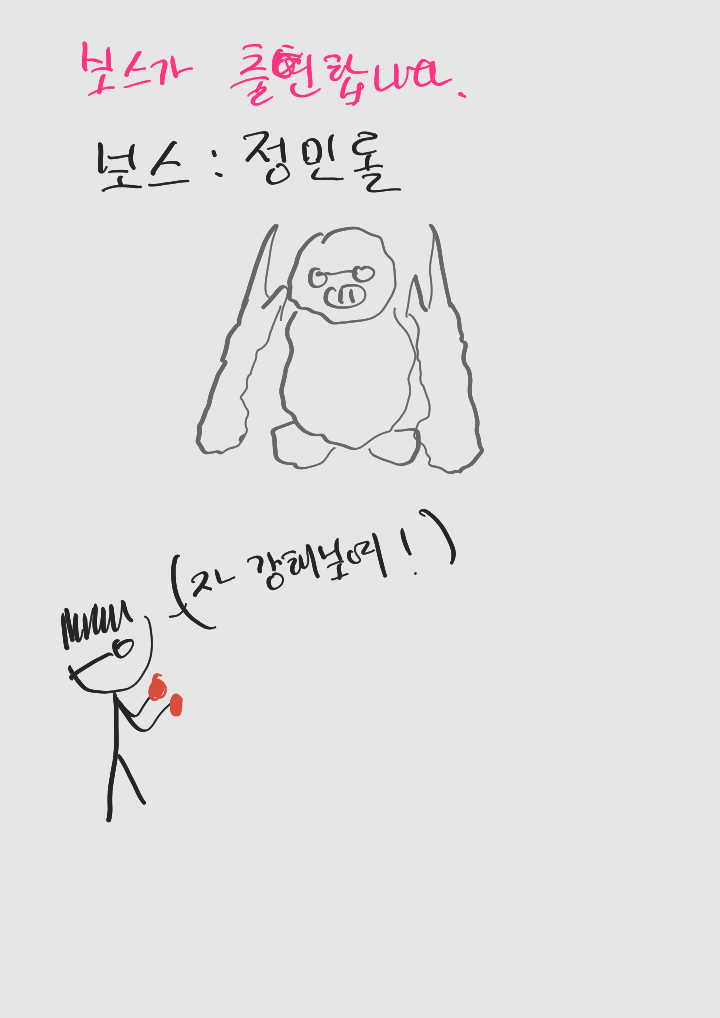 보스가 출현합니다.
보스 : 정민몰
(자 강해보여!)